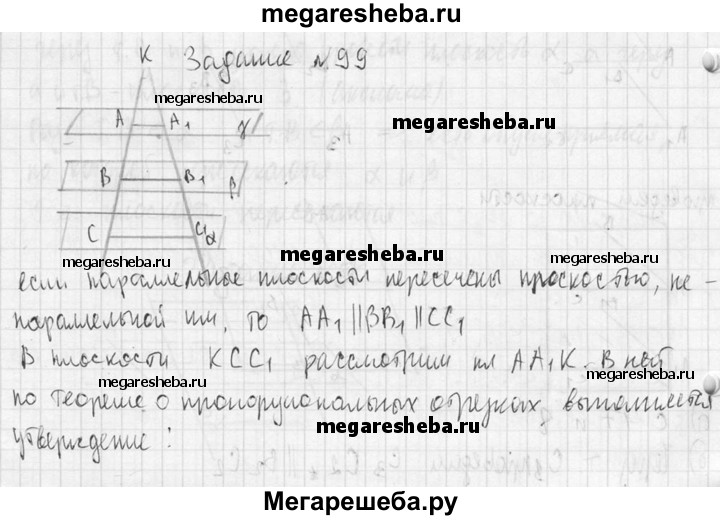 megaresheba.ru
K Задание №99
megaresheba.ru
A A1 γ
megaresheba.ru
B B1 β
megaresheba.ru
C C1 α
megaresheba.ru
megaresheba.ru
megaresheba.ru
если параллельные плоскости пересечены плоскостью, не-
параллельной им, то AA1 || BB1 || CC1
В плоскости KCC1 рассмотрим пл AA1K. В ней
megaresheba.ru
megaresheba.ru
по теореме о пропорциональных отрезках выполняется
утверждение:
megaresheba.ru
Мегарешеба.ру